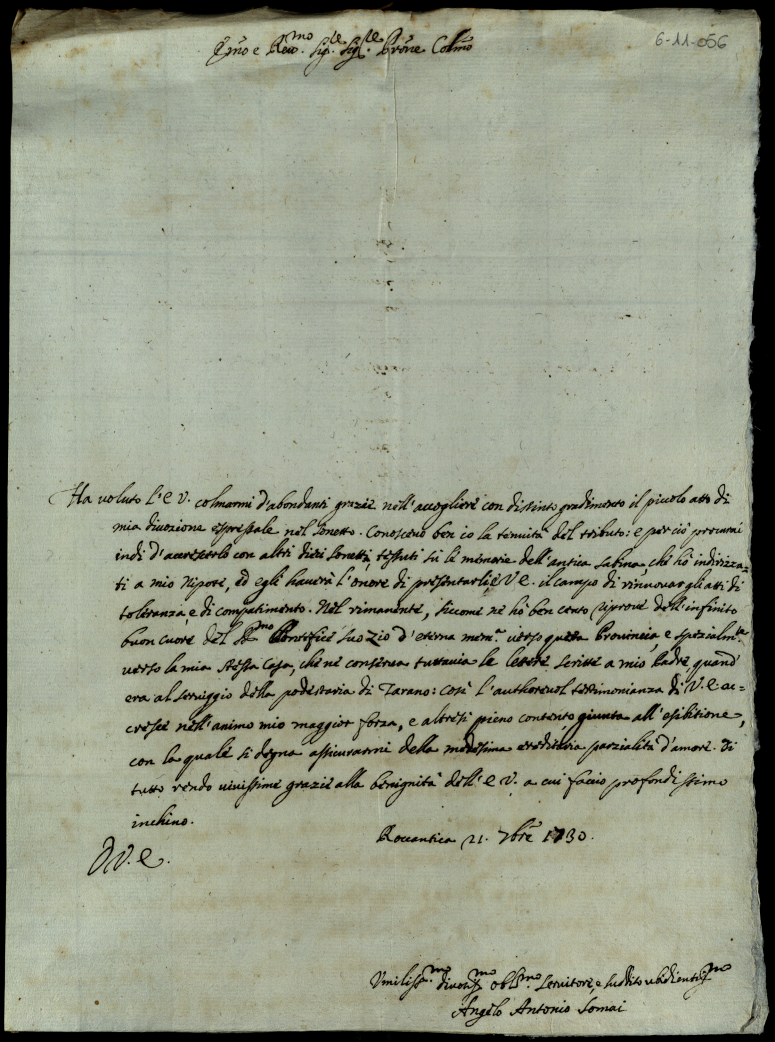 6-11-056
Emo e Rev.mo Sig.re Sig.re Prone Colmo
Ha voluto l'E V. colmarmi d'abondanti grazie nell'accogliere con distinto gradimento il piccolo atto di
mia divozione espressale nel sonetto. Conoscevo ben io la tenuità del tributo: e perciò procurai
indi d'accrescerlo con altri dieci sonetti, tessuti su le memorie dell'antica Sabina, che hò indirizza=
ti a mio Nipote, ed egli haverà l'onore di presentarli, e V E. il campo di rinnovar gli atti di
toleranza, e di compatimento. Nel rimanente, siccome ne hò ben cento riprove dell'infinito
buon cuore del Pontefice suo zio d'eterna mem.a verso questa Provincia, e spezialm.te
verso la mia stessa Casa, che ne conserva tuttavia le lettere scritte a mio Padre, quand'
era al serviggio della podestaria di Tarano: così l'authorevol testimonianza di V. E. ac=
cresce nell'animo mio maggior forza, e altresì pieno contento giunta all'esibitione,
con la quale si degna assicurarmi della medesima ereditaria parzialità d'amore. Di
tutto rendo vivissime grazie alla benignità dell'E V. a cui faccio profondissimo
inchino.
Roccantica 21. 7bre 1730.
D V. E.
Umiliss.mo divotis.mo obl.mo servitore, e suddito ubidientis.mo
Angelo Antonio Somai